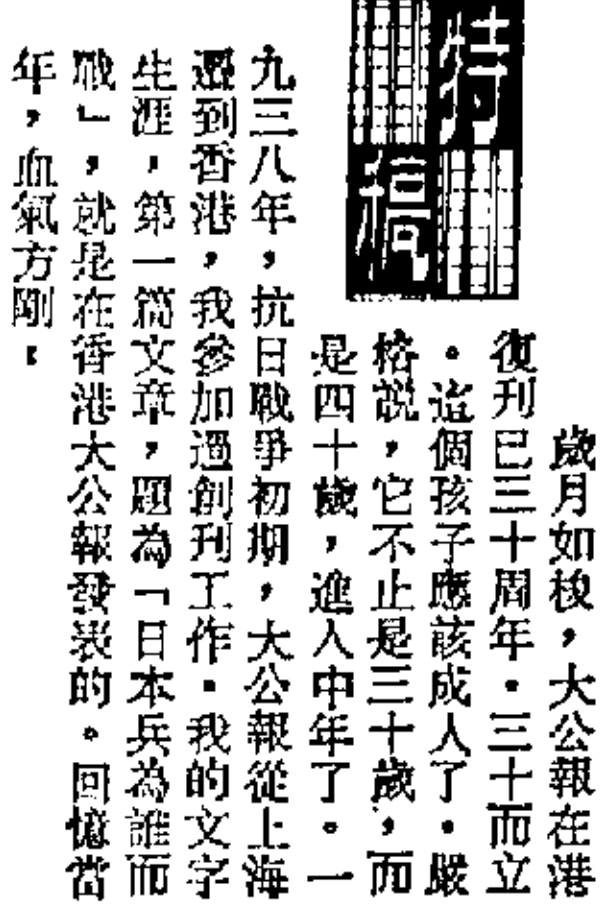 特稿
歲月如梭，大公報在港
復刊已三十周年。三十而立
。這個孩子應該成人了。嚴
格說，它不止是三十歲，而
是四十歲，進入中年了。一
九三八年，抗日戰爭初期，大公報從上海
遷到香港，我參加過創刊工作。我的文字
生涯，第一篇文章，題為「日本兵為誰而
戰」，就是在香港大公報發表的。回憶當
年，血氣方剛：